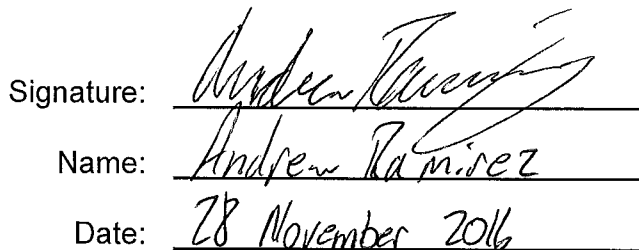 Signature: Andrew Ramirez
Name: Andrew Ramirez
Date: 28 November 2016